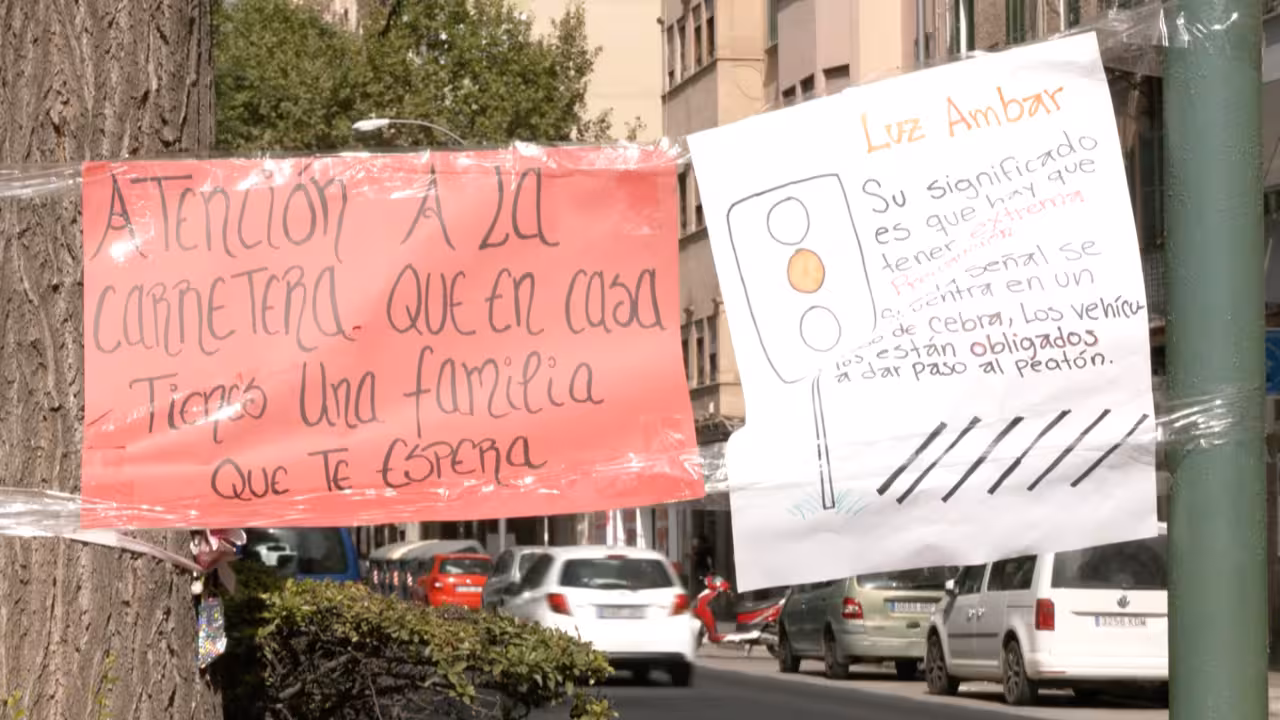 ATención A LA
CARRETERA QUE En CASA
Tienes Una familia
QUE TE ESPERA
Luz Ambar
Su significado
es que hay que
tener extrema
señal se
en un
de cebra, Los vehícu
los están obligados
a dar paso al peatón.